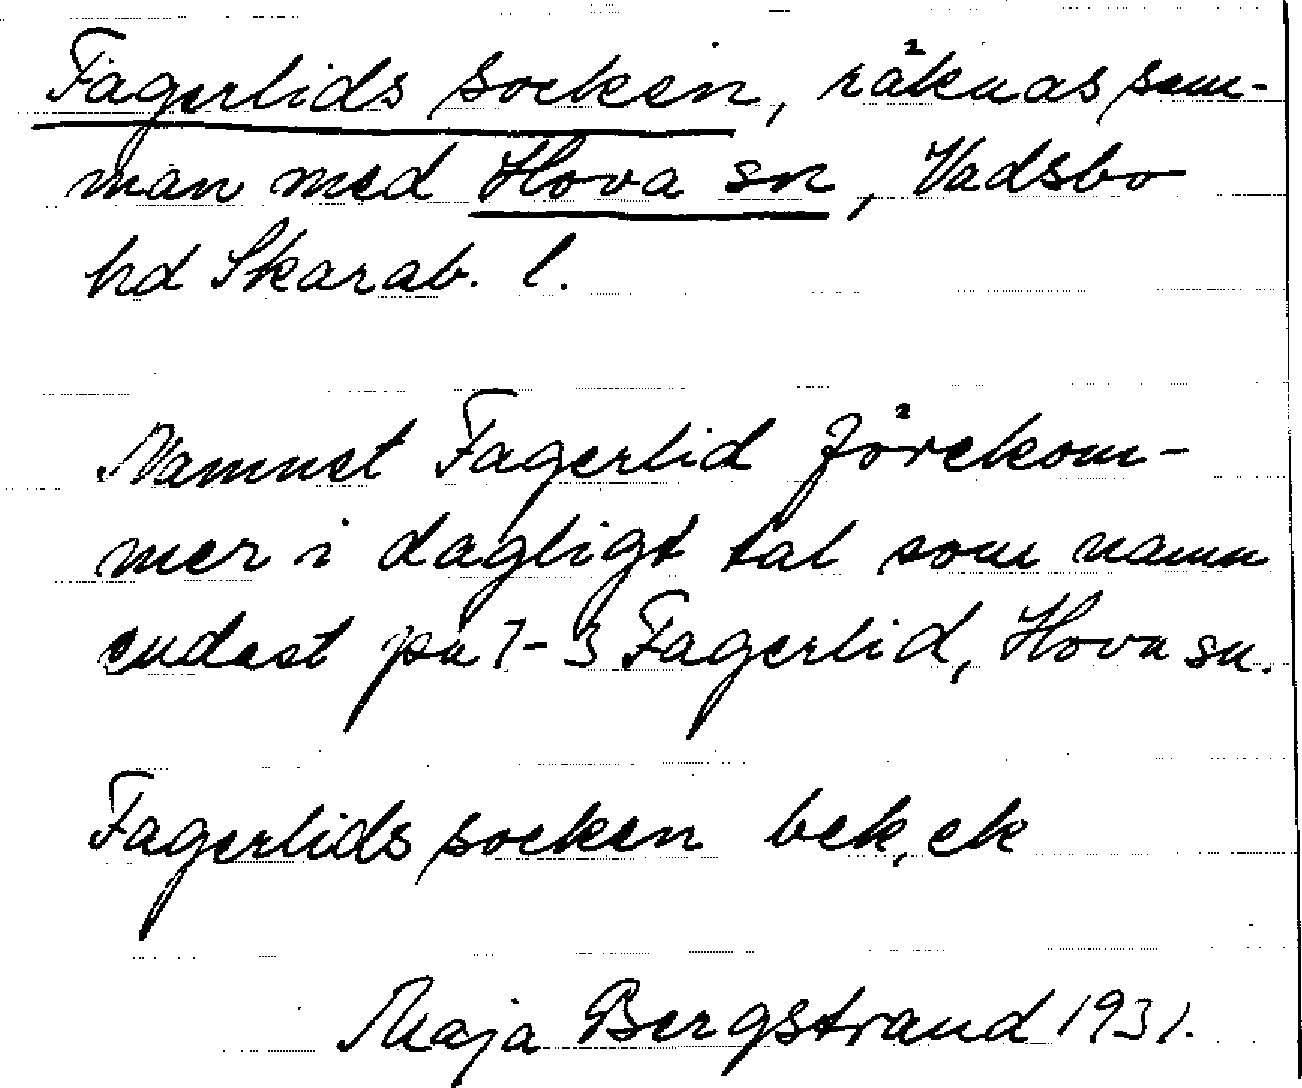 Fagerlids socken, räknas sam-
man med Hova sn, Vadsbo
hd Skarab. l.
Namnet Fagerlid förekom-
mer i dagligt tal som namn
endast på 1-3 Fagerlid, Hova sn.
Fagerlids socken bek, ek
Maja Bergstrand 1931.